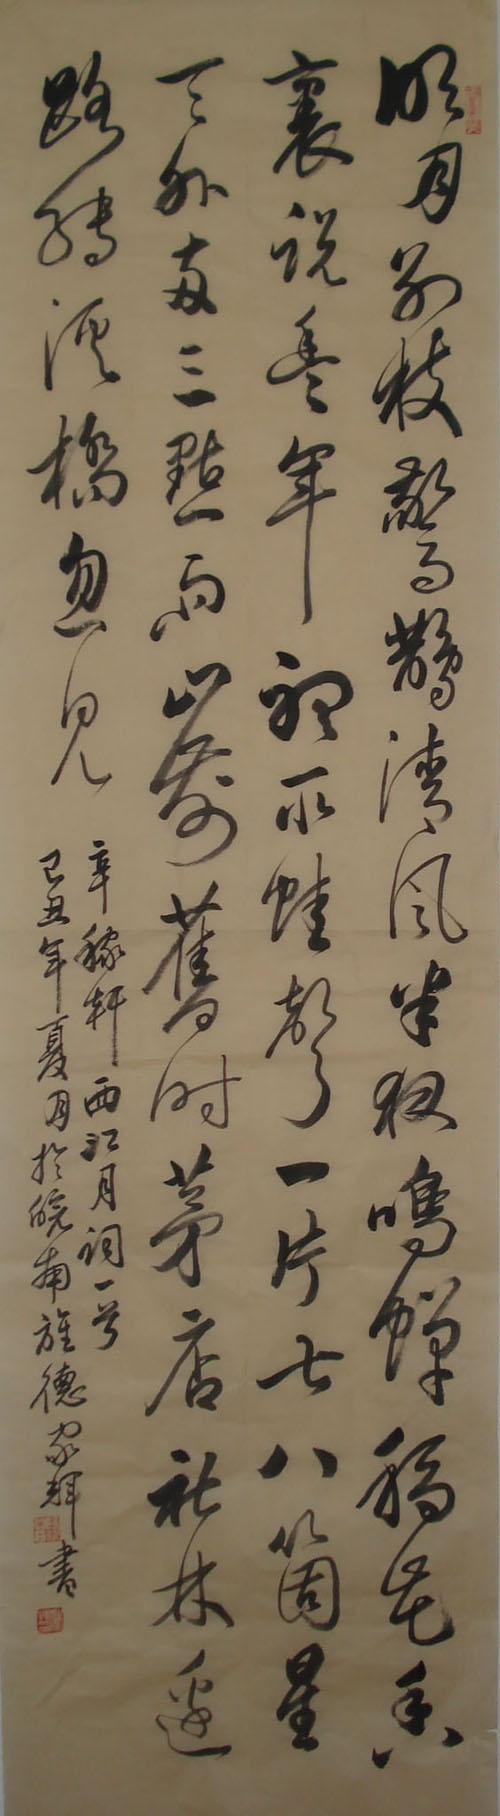 明月别枝驚鵲清風半夜鳴蟬稻花香
裏説豐年聽取蛙聲一片七八箇星
天外兩三點雨山前舊时茅店社林邊
路轉溪橋忽見
辛稼軒西江月詞一首
己丑年夏月於皖南旌德家輝書